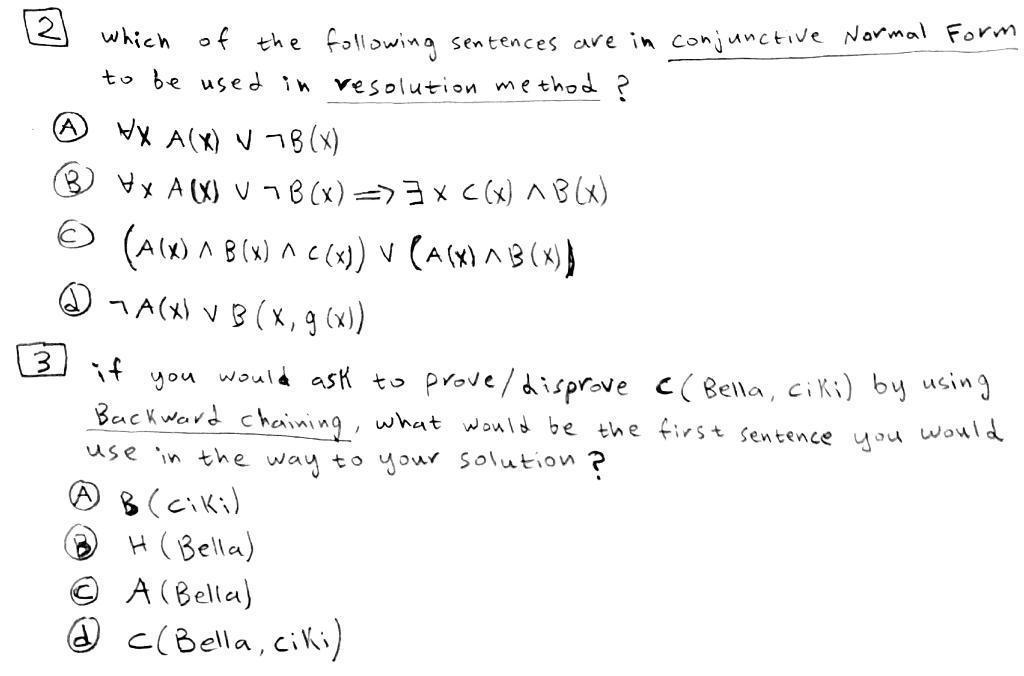 2 which of the following sentences are in conjunctive Normal Form
to be used in resolution method ?
A ∀x A(x) ∨ ¬B(x)
B ∀x A(x) ∨ ¬B(x) ⟹ ∃x C(x) ∧ B(x)
C (A(x) ∧ B(x) ∧ C(x)) ∨ (A(x) ∧ B(x))
d ¬A(x) ∨ B(x, g(x))
3 if you would ask to prove/disprove C(Bella, ciki) by using
Backward chaining, what would be the first sentence you would
use in the way to your solution ?
A B(ciki)
B H(Bella)
C A(Bella)
d C(Bella, ciki)